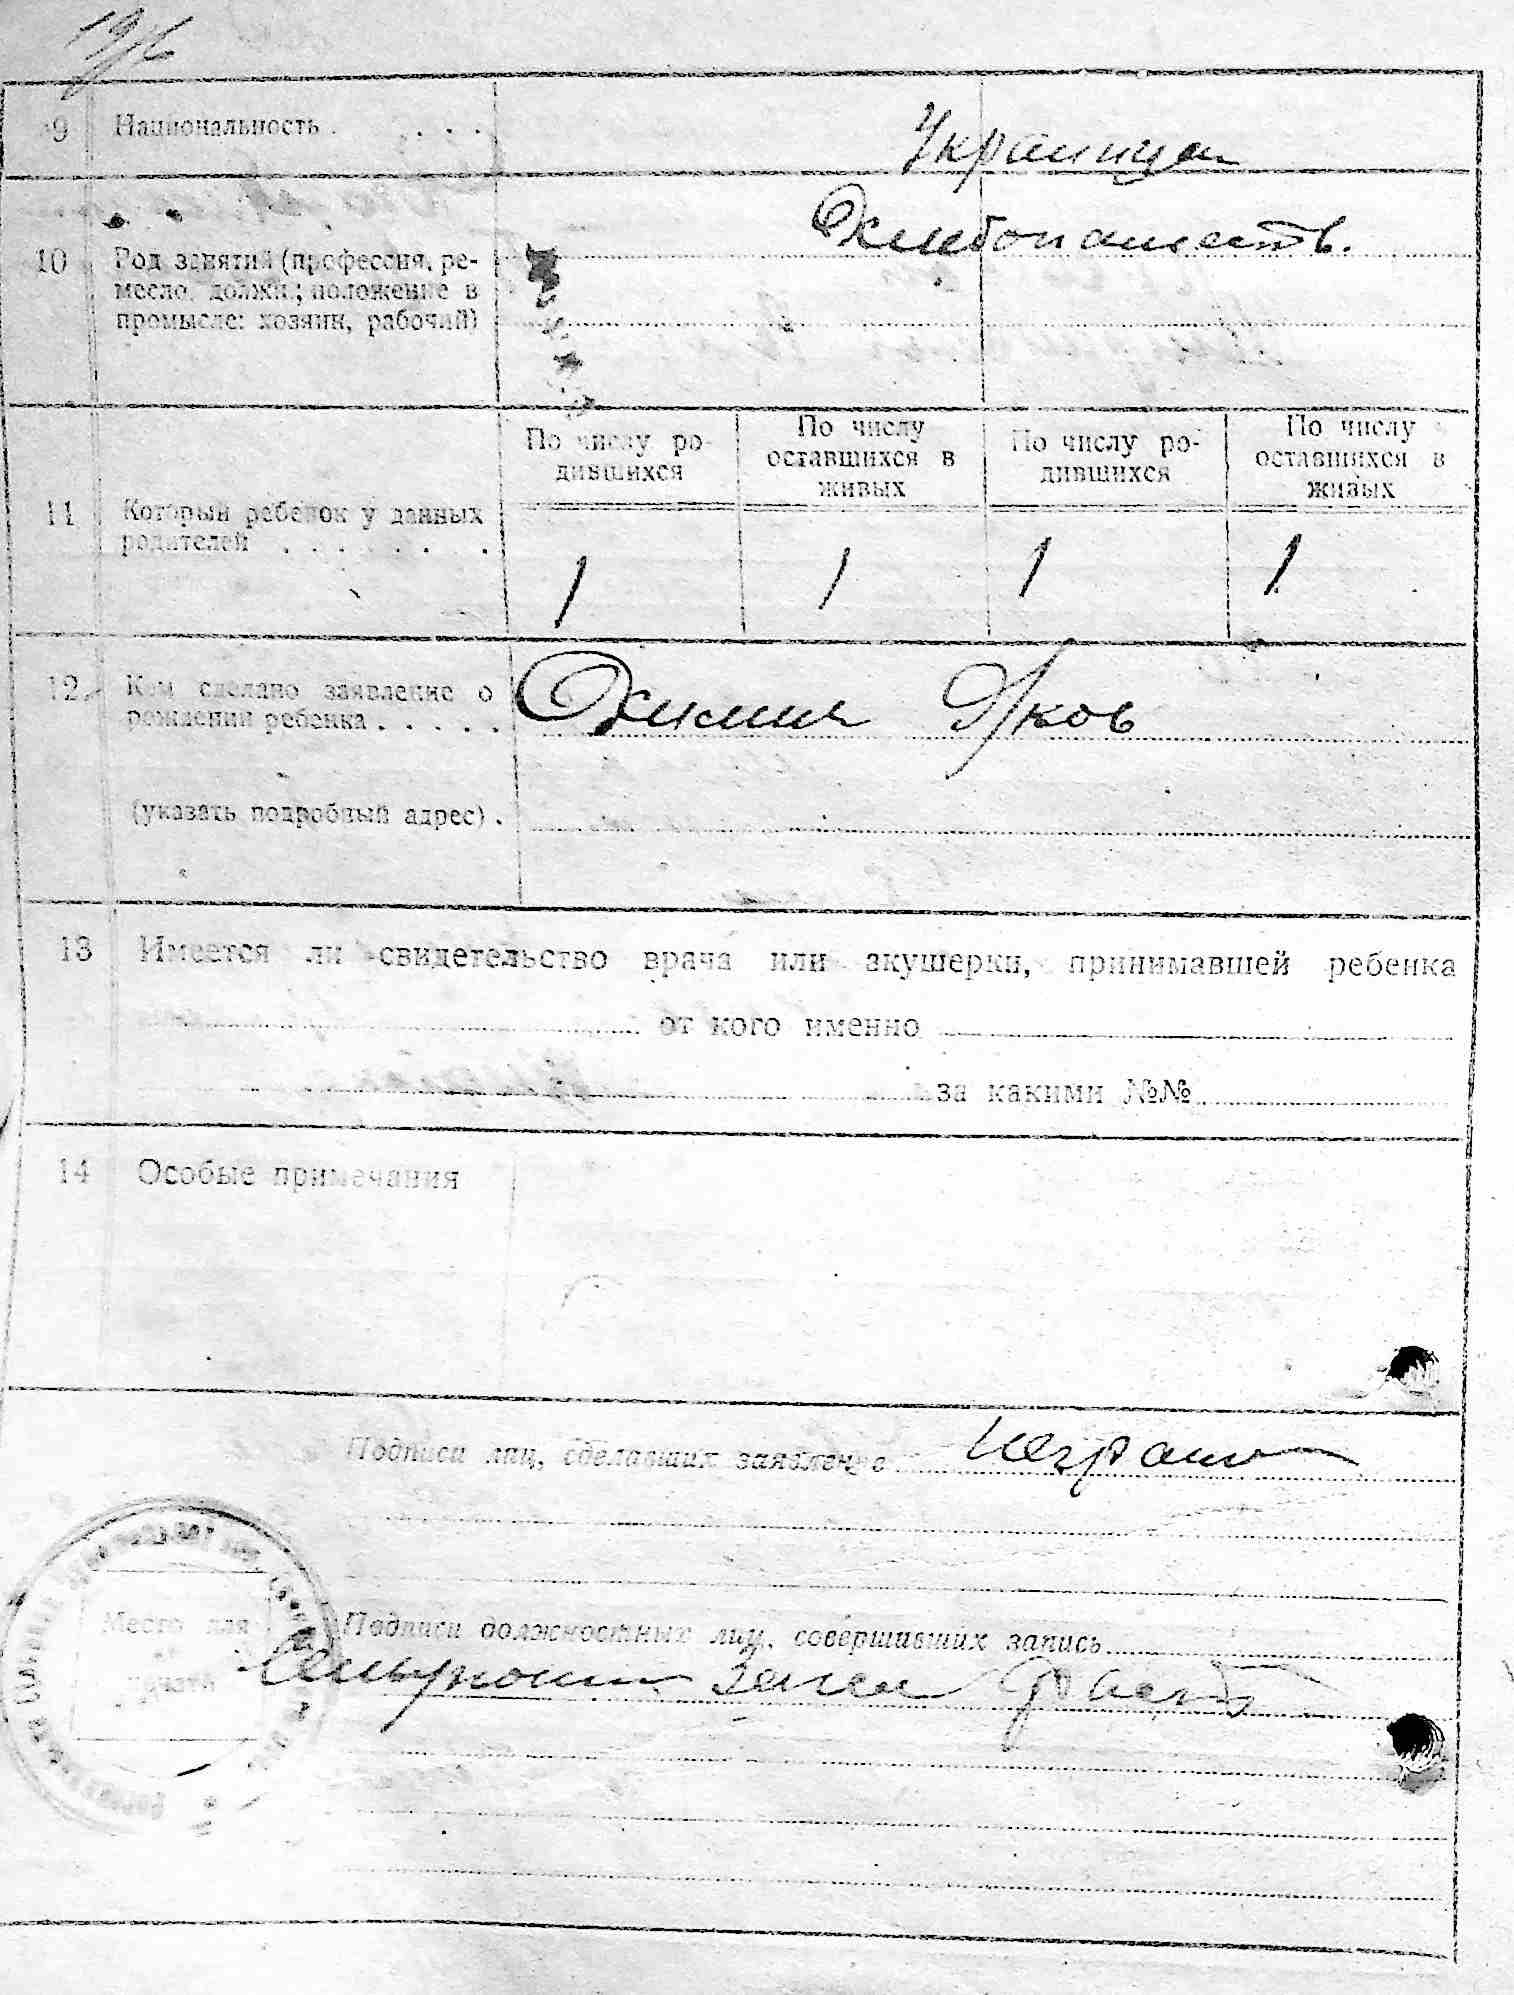 9 Национальность . . . .
Украинцы
10 Род занятий (профессия, ре-
месло, должн.; положение в
промысле: хозяин, рабочий)
Хлебопашеств.
11 Который ребенок у данных
родителей . . . . . . .
По числу ро-
дившихся
По числу
оставшихся в
живых
По числу ро-
дившихся
По числу
оставшихся в
живых
1 1 1 1
12 Кем сделано заявление о
рождении ребенка . . . . .
Яков
(указать подробный адрес) .
13 Имеется ли свидетельство врача или акушерки, принимавшей ребенка
от кого именно
за какими №№
14 Особые примечания
Подписи лиц, сделавших заявление
Место для
печати
Подписи должностных лиц, совершивших запись